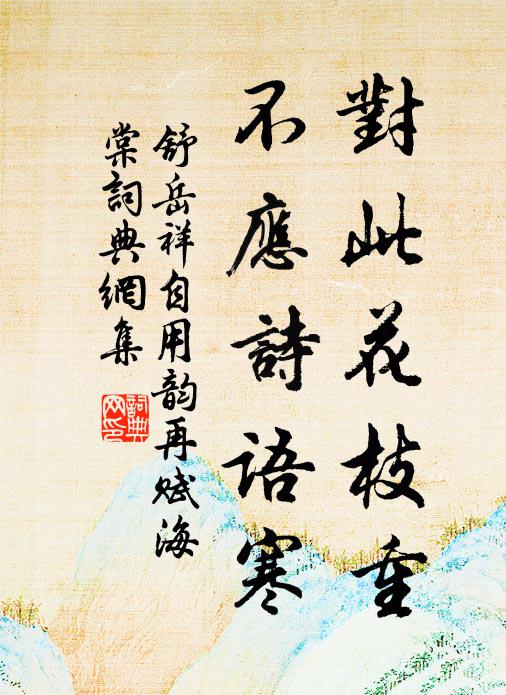 對此花枝重
不應詩語寒
舒岳祥自用韵再赋海
棠詞典網集
詞典
网印